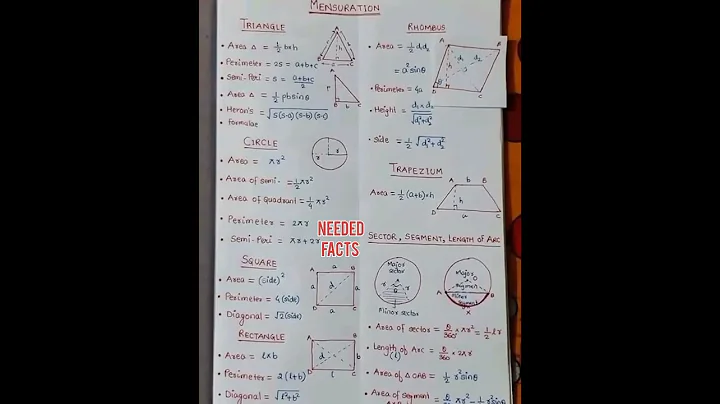 MENSURATION
TRIANGLE
• Area Δ = 1/2 bxh
• Perimeter = 2S = a+b+c
• Semi-Peri = S = a+b+c/2
• Area Δ = 1/2 pbsinθ
• Heron's = √s(s-a)(s-b)(s-c)
• formulae
A
h
B
C
A
P
B
b
C
CIRCLE
• Area = πr²
• Area of semi- = 1/2 πr²
• Area of Quadrant = 1/4 πr²
• Perimeter = 2πr
• Semi-Peri = πr + 2r
r
r
NEEDED
FACTS
SQUARE
• Area = (side)²
• Perimeter = 4(side)
• Diagonal = √2(side)
a
A
B
a
d
a
D
a
C
RECTANGLE
• Area = lxb
• Perimeter = 2(l+b)
• Diagonal = √l²+b²
A
B
d
b
D
l
C
RHOMBUS
• Area = 1/2 d₁d₂
= a²sinθ
• Perimeter = 4a
• Height = d₁x d₂/√d₁²+d₂²
• Side = 1/2 √d₁²+d₂²
A
B
d₁
d₂
h
θ
D
C
TRAPEZIUM
Area = 1/2 (a+b)xh
A
b
B
h
D
a
C
SECTOR, SEGMENT, Length of ARC
Major
sector
r
θ
r
Minor sector
Major
segment
O
A
B
Minor
segment
X
• Area of sector = θ/360 x πr² = 1/2 lr
• Length of Arc = θ/360 x 2πr
(l)
• Area of Δ OAB = 1/2 r²sinθ
• Area of segment = θ πr² - 1 r²sinθ